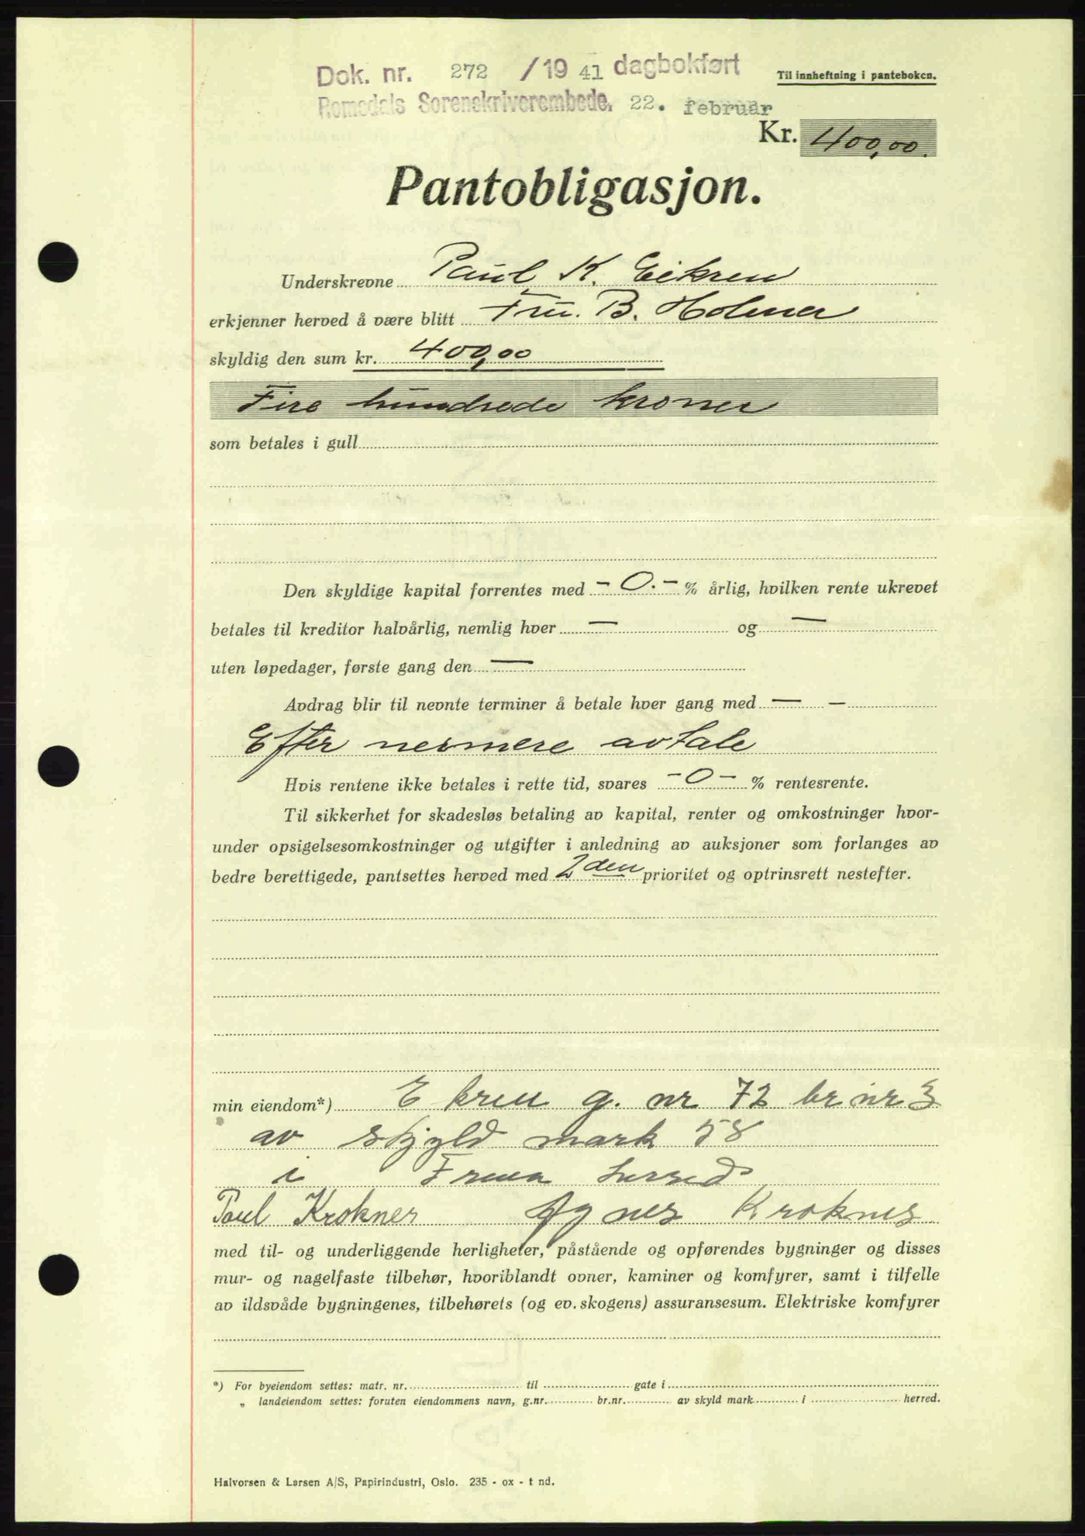 Dok. nr. 272 /19 41 dagbokført
Romsdals Sorenskriverembede, 22. februar
Til innheftning i panteboken.
Kr. 400,00.
Pantobligasjon.
Underskrevne Paul K. Eikren
erkjenner herved å være blitt Fru. B. Holmer
skyldig den sum kr. 400,00
Fire hundrede kroner
som betales i gull
Den skyldige kapital forrentes med -0.- % årlig, hvilken rente ukrevet
betales til kreditor halvårlig, nemlig hver — og —
uten løpedager, første gang den —
Avdrag blir til nevnte terminer å betale hver gang med — –
Efter nermere avtale
Hvis rentene ikke betales i rette tid, svares -0- % rentesrente.
Til sikkerhet for skadesløs betaling av kapital, renter og omkostninger hvor-
under opsigelsesomkostninger og utgifter i anledning av auksjoner som forlanges av
bedre berettigede, pantsettes herved med 2den prioritet og optrinsrett nestefter.
min eiendom*) Ekren g. nr 72 br nr 3
av skyld mark 58
i Frena herred
Paul Kroknes Agnes Kroknes
med til- og underliggende herligheter, påstående og opførendes bygninger og disses
mur- og nagelfaste tilbehør, hvoriblandt ovner, kaminer og komfyrer, samt i tilfelle
av ildsvåde bygningenes, tilbehørets (og ev. skogens) assuransesum. Elektriske komfyrer
*) For byeiendom settes: matr. nr. til gate i
„ landeiendom settes: foruten eiendommens navn, g.nr. br.nr. av skyld mark i herred.
Halvorsen & Larsen A/S, Papirindustri, Oslo. 235 - ox - t nd.